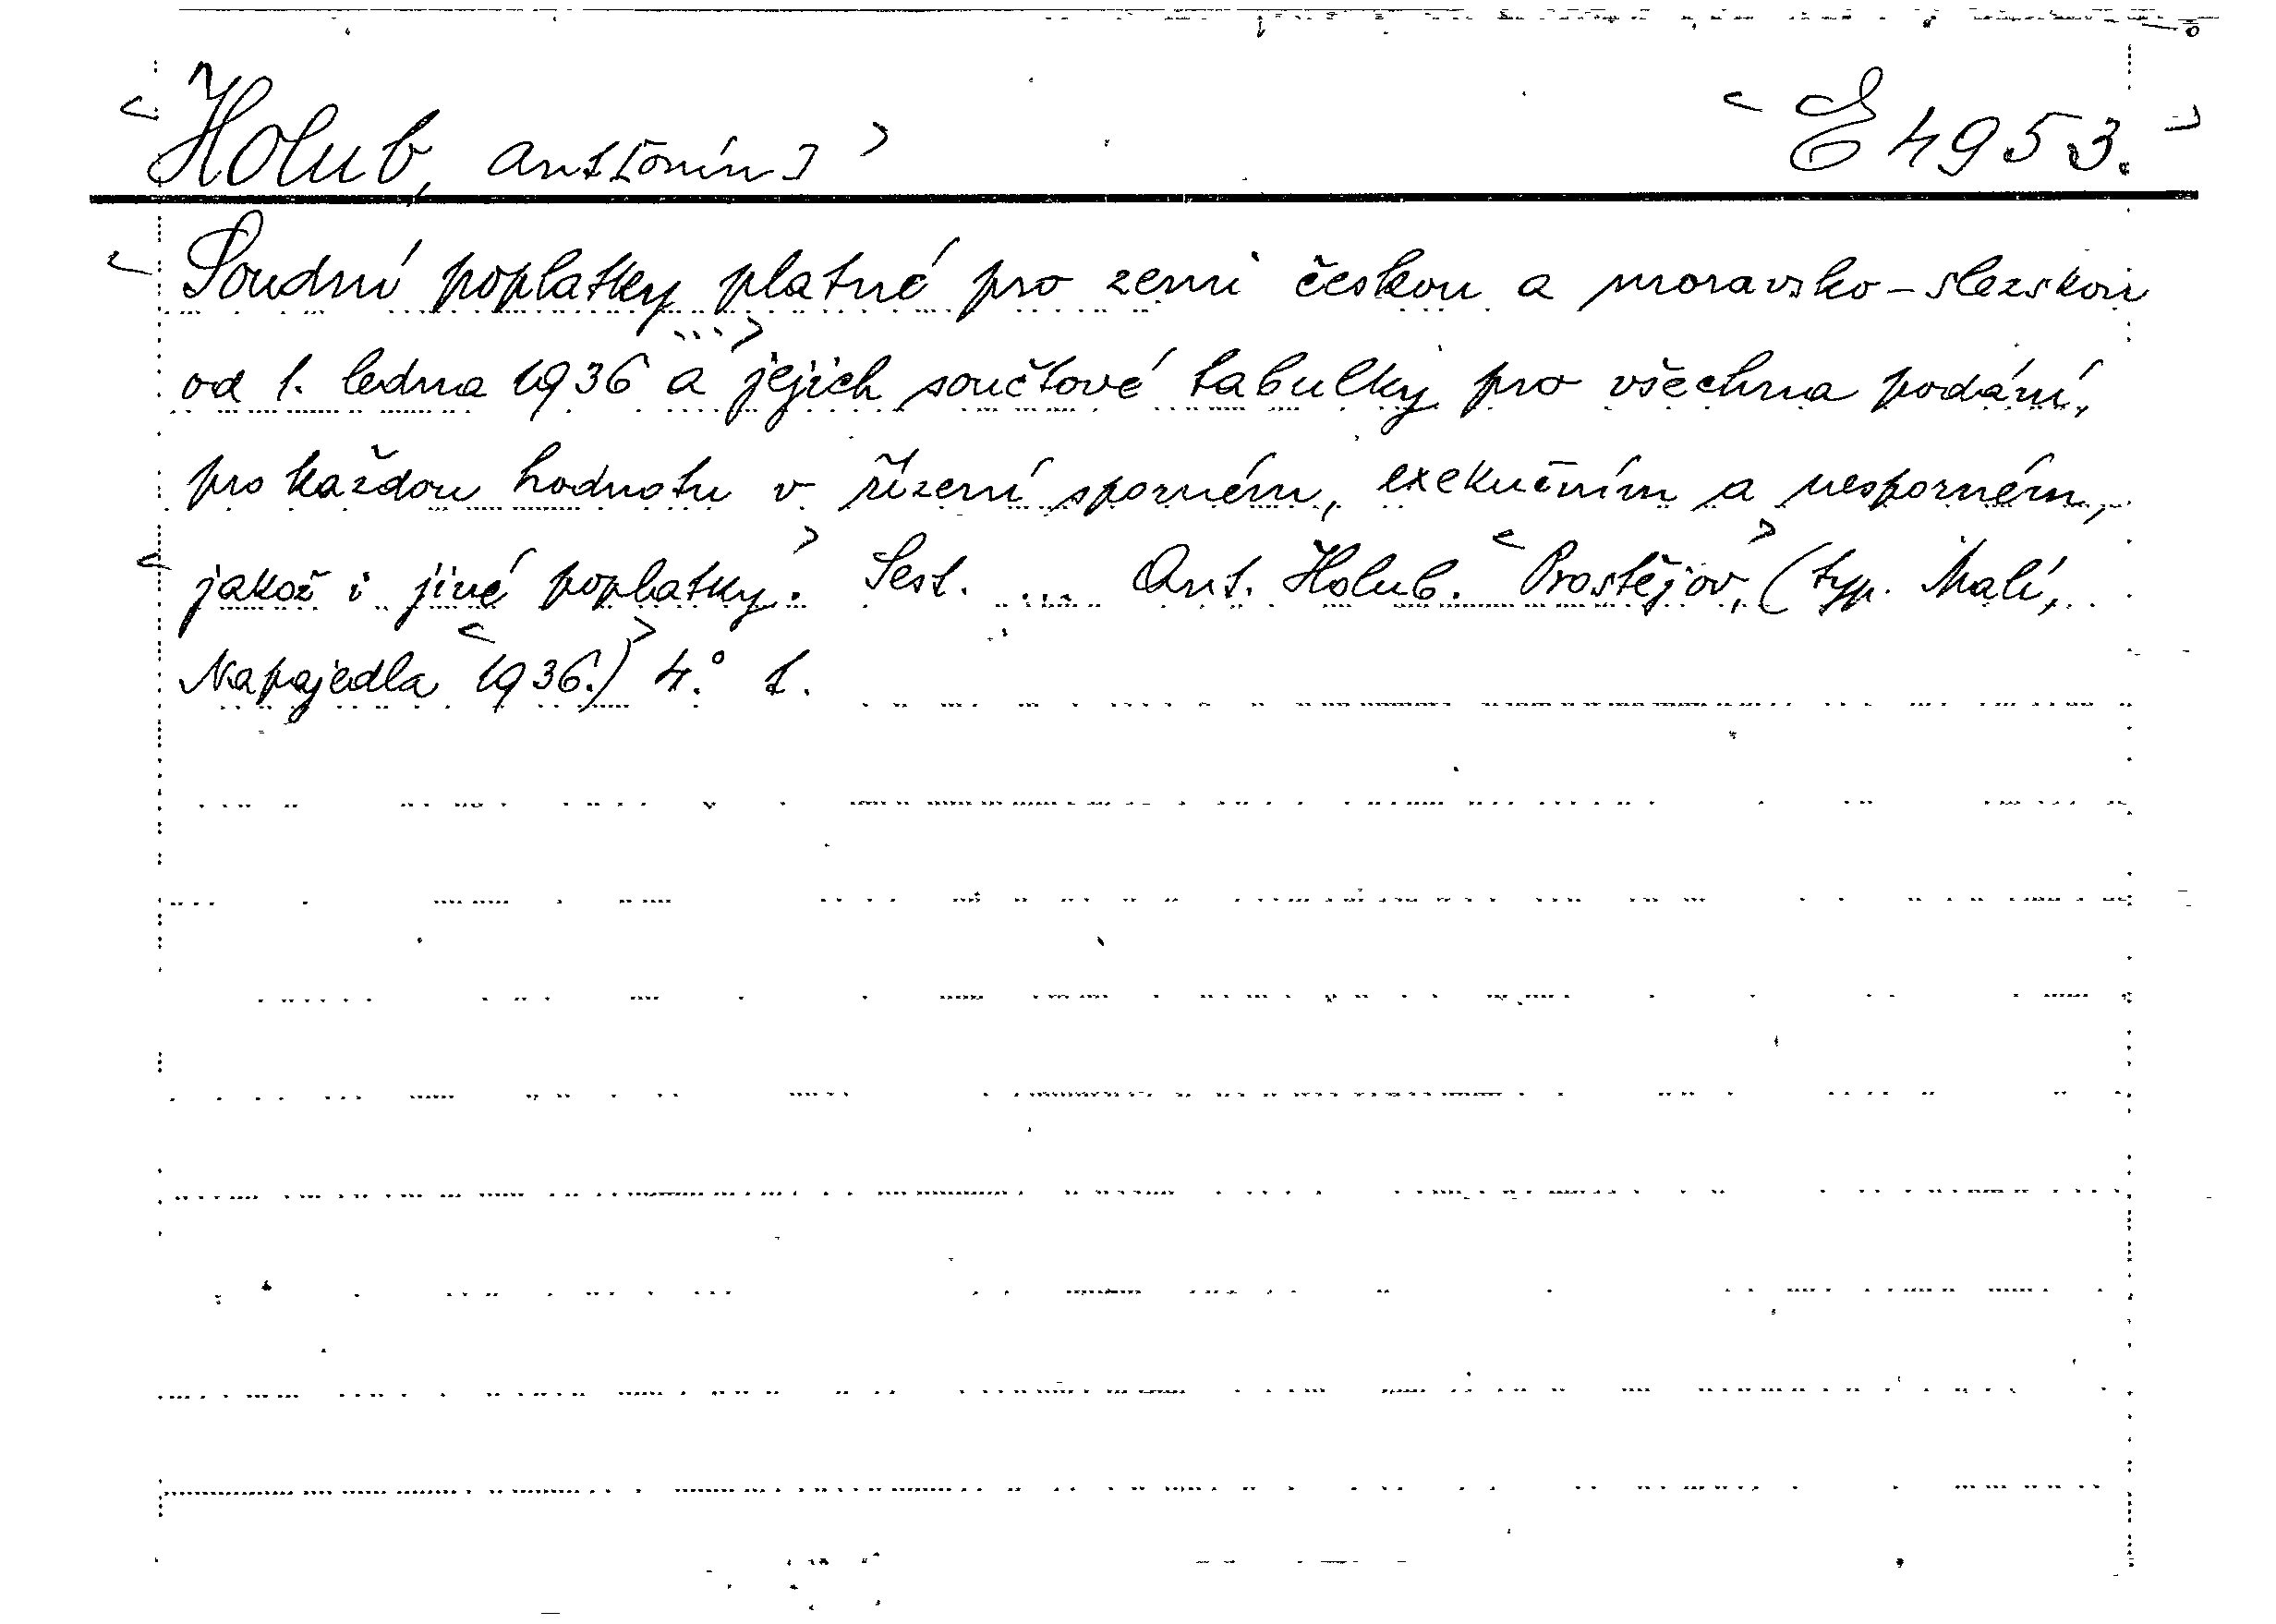 Holub, Ant[onín] E 4953.
Soudní poplatky platné pro zemi českou a moravsko-slezskou
od 1. ledna 1936 a jejich součtové tabulky pro všechna podání,
pro každou hodnotu v řízení sporném, exekučním a nesporném,
jakož i jiné poplatky. Sest. ... Ant. Holub. Prostějov, (typ. Malí,
Napajedla 1936.) 4.° 1.